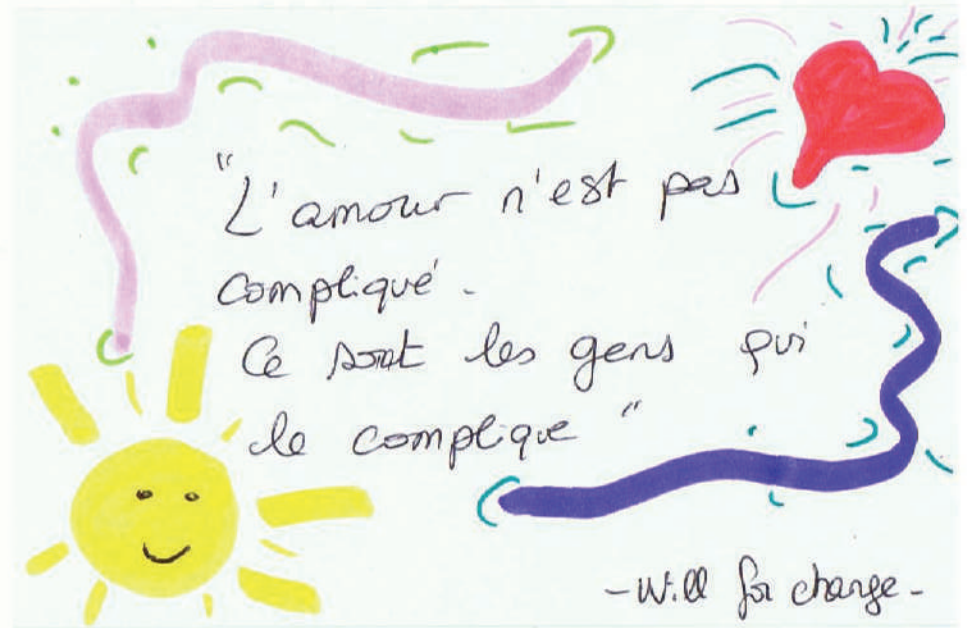 "L'amour n'est pas
compliqué.
Ce sont les gens qui
le complique"
-Will for change-